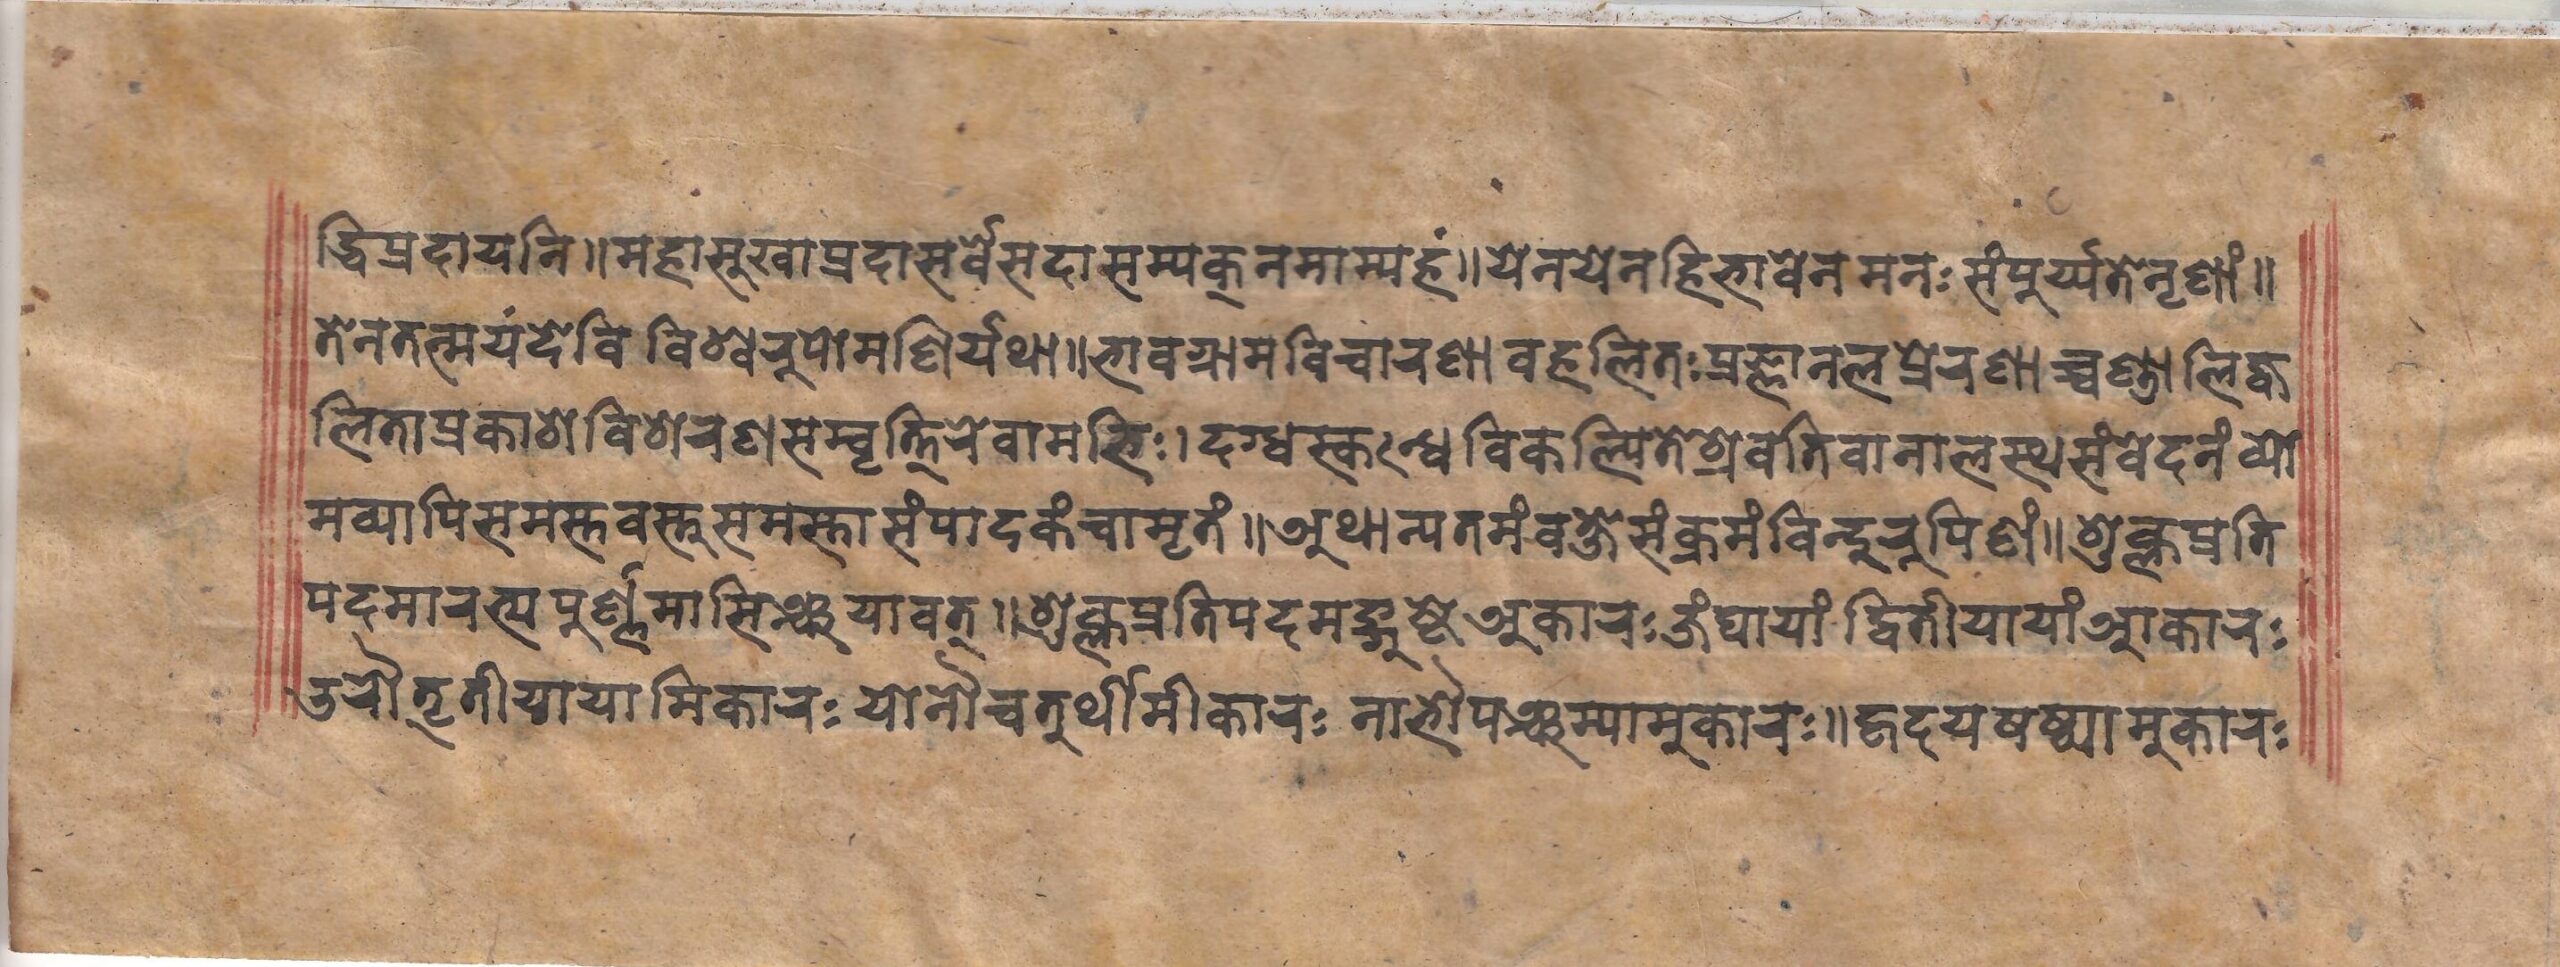 द्धिप्रदायनि॥महासुखाप्रदासर्वेसदासम्यक्नमाम्यहं॥येनयेनहिभावेनमनःसंपुर्य्यतेनृणां॥
तेनतत्मयंदेवि विश्वरूपोमणिर्यथा॥भावग्रामविचारणा वहलितःप्रज्ञानलप्रेरणाच्चण्डालिज्व
लिताप्रकाशविशरणसम्वृत्तिरेवामभिः। दग्धस्कःन्धविकल्पितेश्रवतिवानालस्थसंवेदनंव्यो
मव्यापिसमस्तवस्तुसमस्तासंपादकंचामृतं॥अथान्यतमंवक्षेसंक्रमंविन्दुरूपिणं॥शुक्लप्रति
पदमारभ्यपुर्ण्णमासिञ्चयावत्॥शुक्लप्रतिपदमङ्गुष्टेअकारःजंघायां द्वितीयायांआकारः
उरौतृतीयायामिकारः योनौचतुर्थीमीकारः नाभौपञ्चम्यामुकारः॥हृदयषष्ठ्यामुकारः